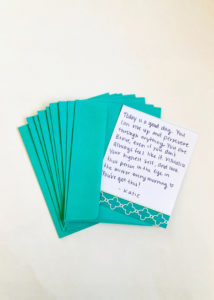 Today is a good day. You
can rise up and persevere
through anything. You are
Brave, even if you don't
always feel like it. Visualize
your highest self, and look
that person in the eye in
the mirror every morning.
You've got this!
- Katie